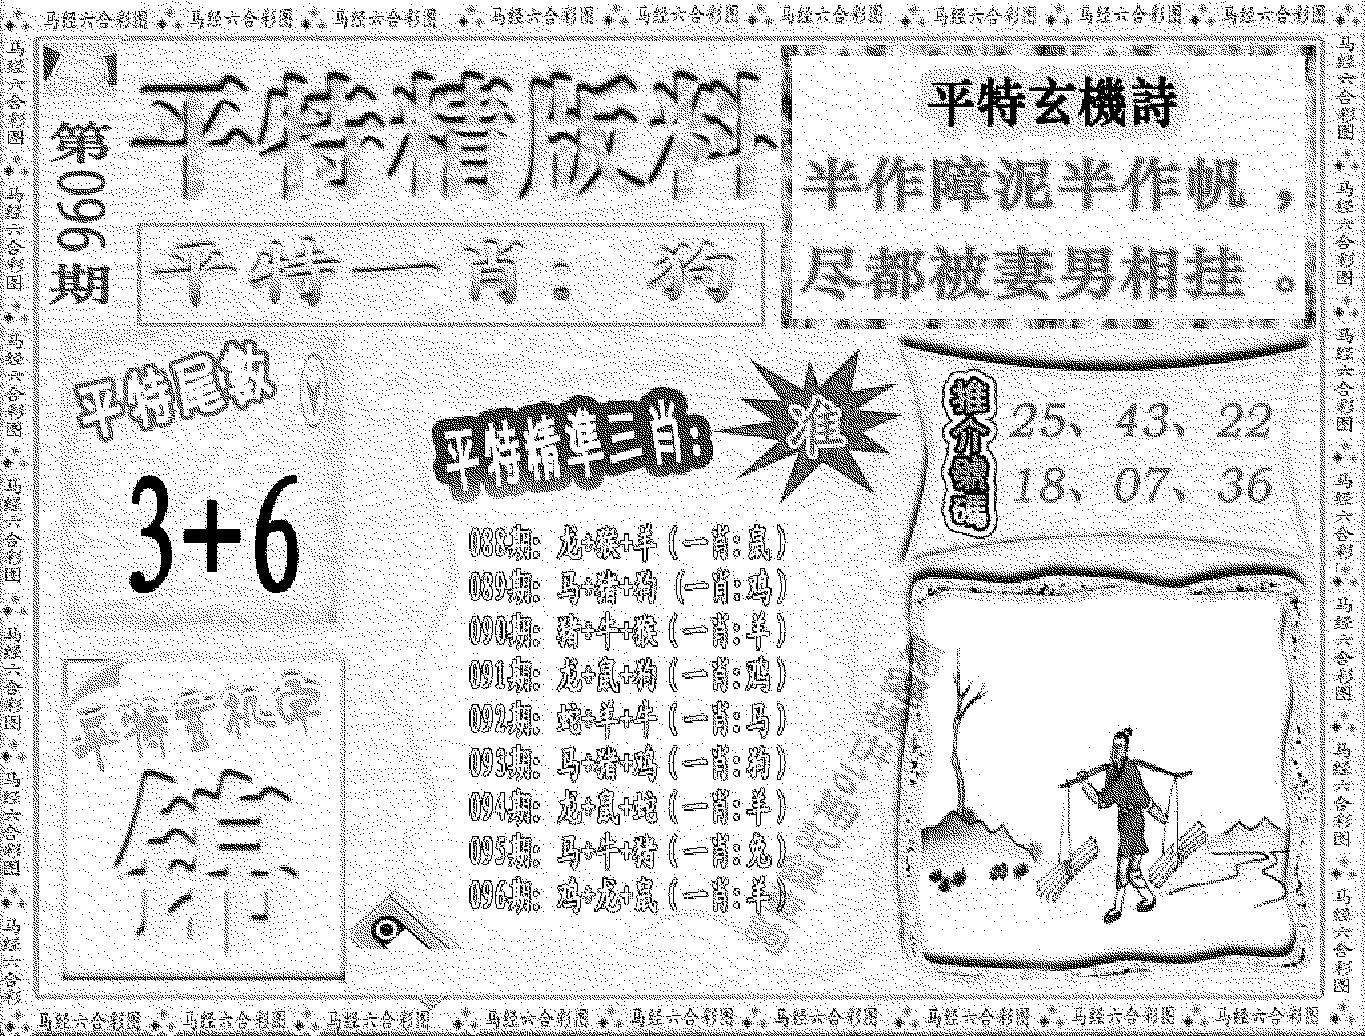 马经六合彩图 马经六合彩图 马经六合彩图 马经六合彩图 马经六合彩图 马经六合彩图 马经六合彩图 马经六合彩图 马经六合彩图
第096期
平特精版料
平特一肖： 狗
平特玄機詩
半作障泥半作帆，
尽都被妻男相挂。
平特尾数
3+6
平特精準三肖:
准
推介號碼
25、43、22
18、07、36
088期: 龙+猴+羊 (一肖:鼠)
089期: 马+猪+狗 (一肖:鸡)
090期: 猪+牛+猴 (一肖:羊)
091期: 龙+鼠+狗 (一肖:鸡)
092期: 蛇+羊+牛 (一肖:马)
093期: 马+猪+鸡 (一肖:狗)
094期: 龙+鼠+蛇 (一肖:羊)
095期: 马+牛+猪 (一肖:兔)
096期: 鸡+龙+鼠 (一肖:羊)
平特玄机字
马经六合彩图 马经六合彩图 马经六合彩图 马经六合彩图 马经六合彩图 马经六合彩图 马经六合彩图 马经六合彩图 马经六合彩图